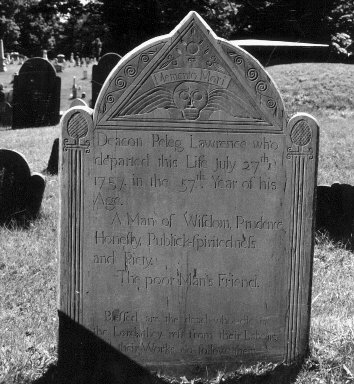 Memento Mori
Deacon Peleg Lawrence who
departed this Life July 27th
1757. in the 57th Year of his
Age.
A Man of Wisdom, Prudence,
Honesty, Publick-spiritedness
and Piety.
The poor Man's Friend.
Blessed are the dead who die in
the Lord, they rest from their Labours
their Works do follow them